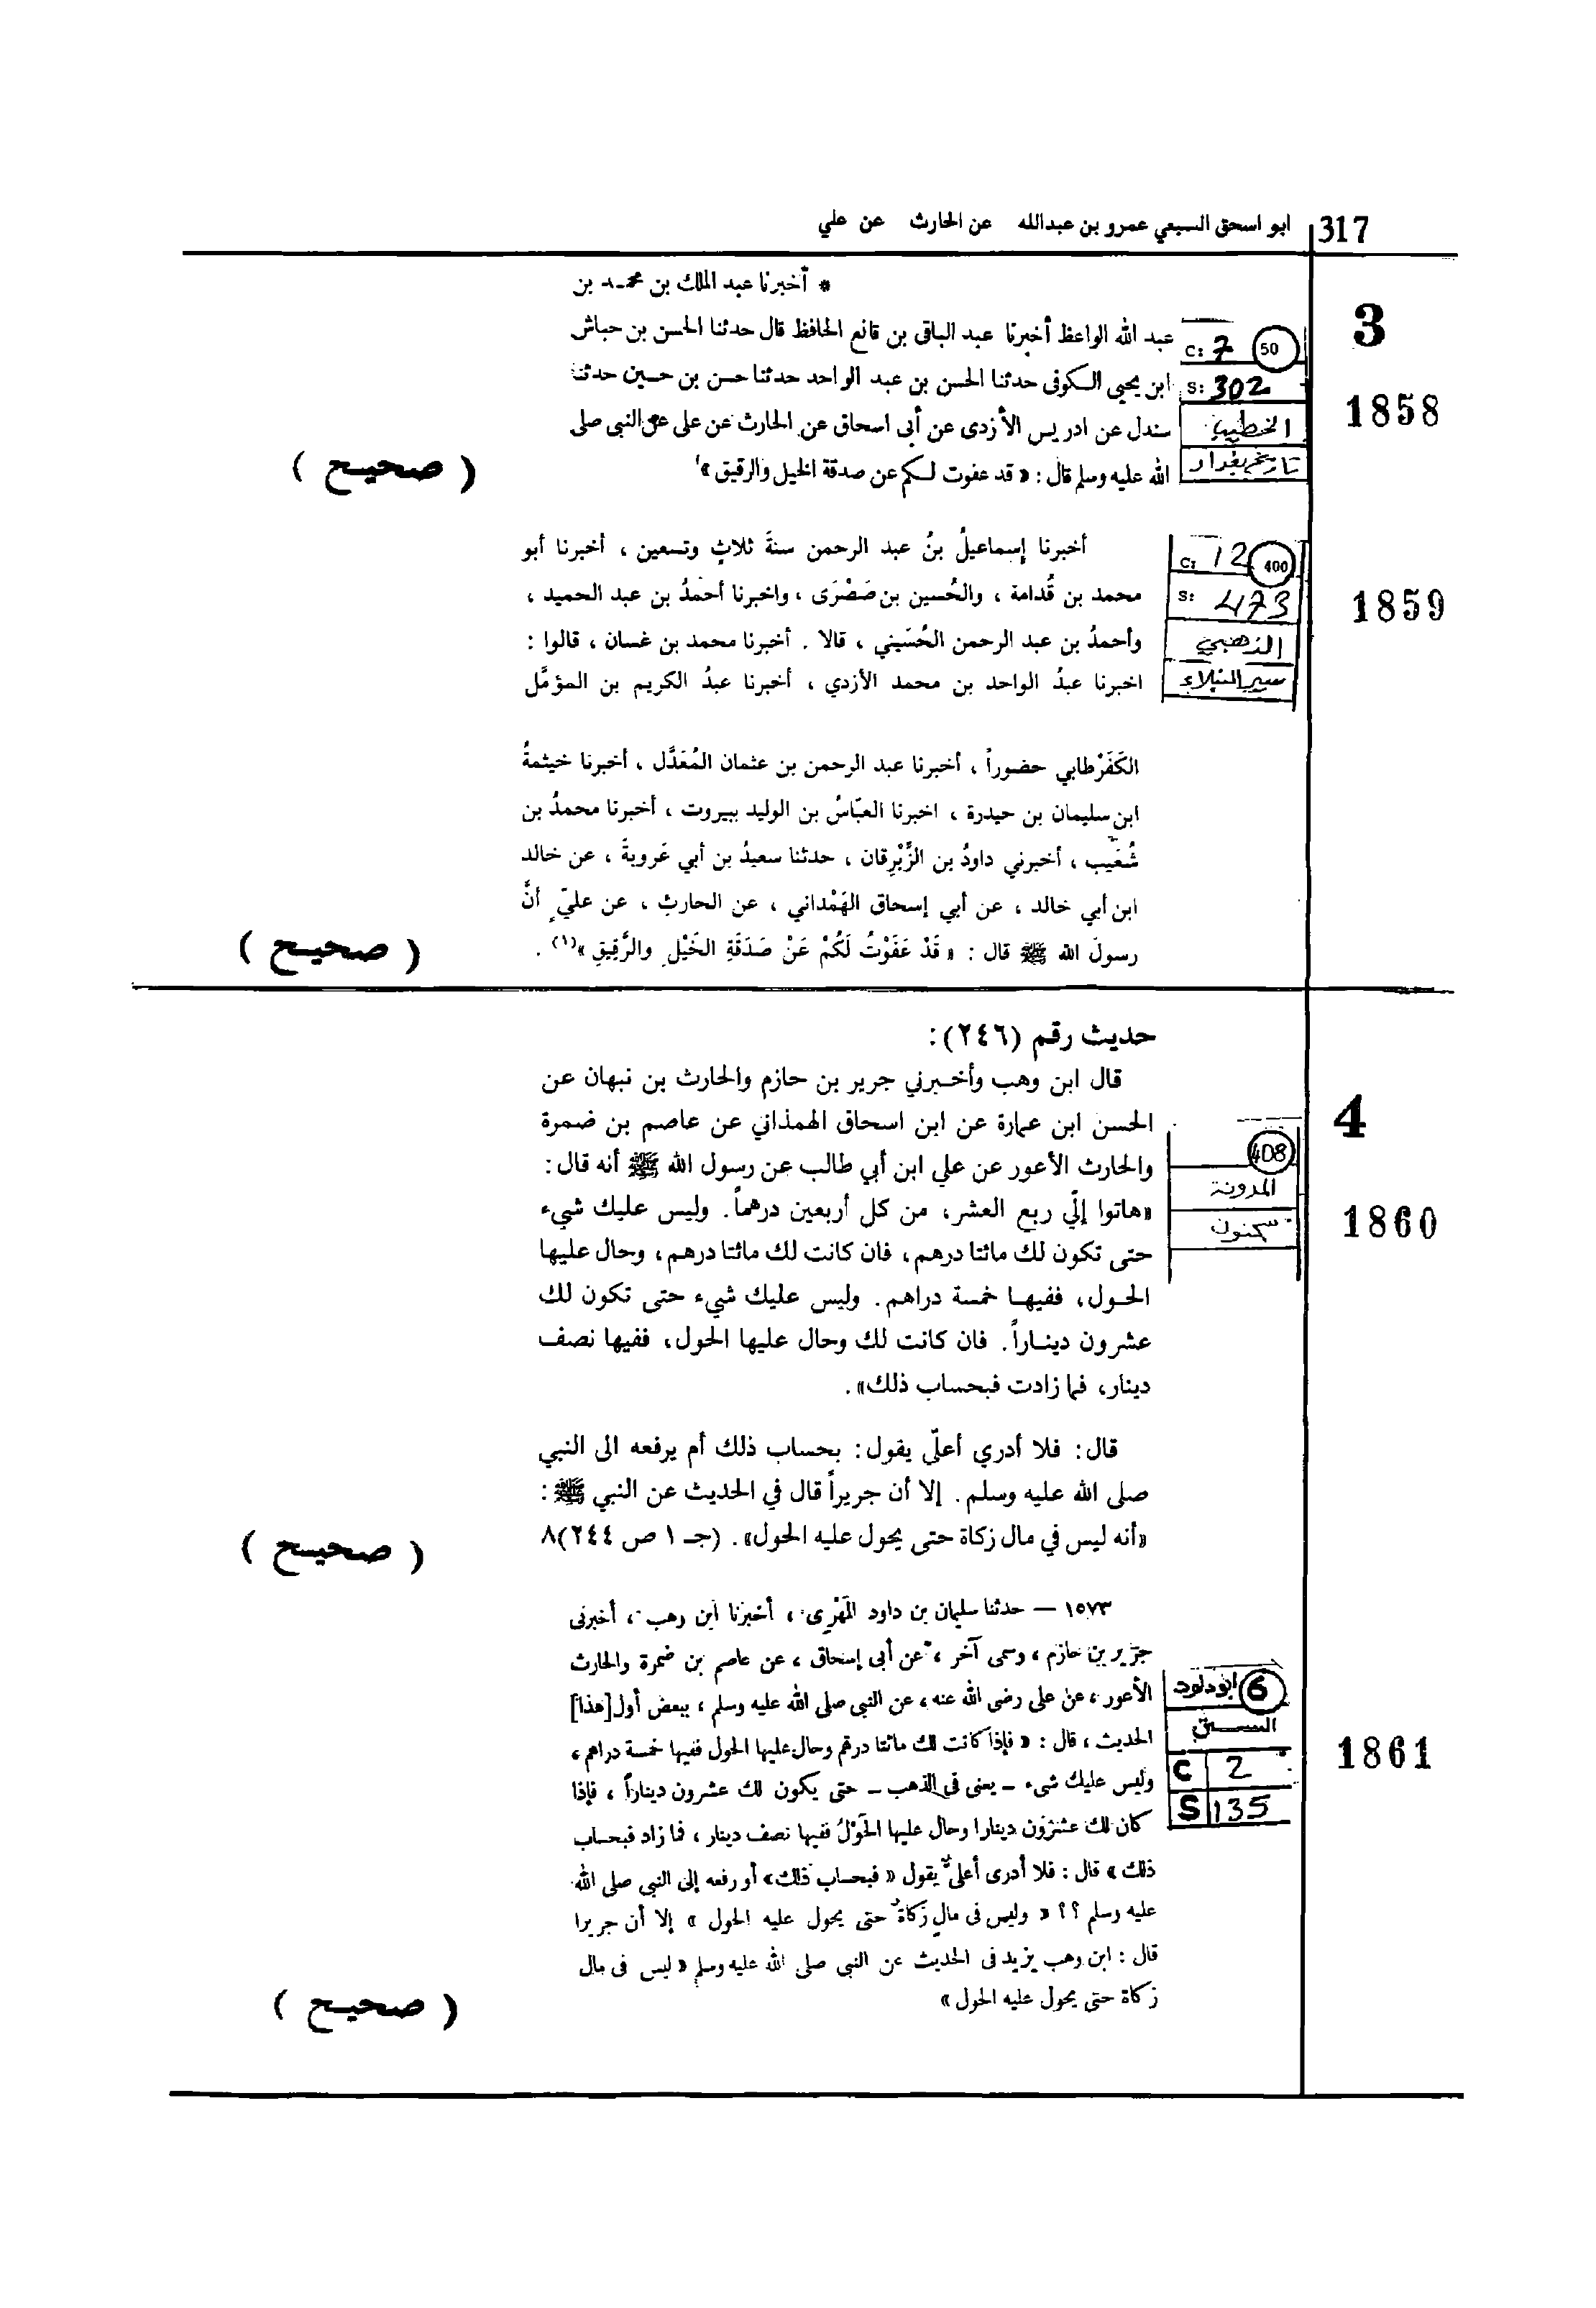 317
ابو اسحق السبعي عمرو بن عبدالله عن الحارث عن علي
3
1858
C: 7 50
S: 302
الخطيب
تاريخ بغداد
* أخبرنا عبد الملك بن محمد بن
عبد الله الواعظ أخبرنا عبد الباقى بن قانع الحافظ قال حدثنا الحسن بن حباش
ابن يحيى الكوفى حدثنا الحسن بن عبد الواحد حدثنا حسن بن حسين حدثنا
سندل عن ادريس الأزدى عن أبى اسحاق عن الحارث عن على عن النبى صلى
الله عليه وسلم قال : « قد عفوت لكم عن صدقة الخيل والرقيق »
( صحيح )
1859
C: 12 400
S: 473
الذهبي
سير النبلاء
أخبرنا إسماعيلُ بنُ عبد الرحمن سنةَ ثلاثٍ وتسعين ، أخبرنا أبو
محمد بن قُدامة ، والحُسين بن صَصْرَى ، واخبرنا أحمدُ بن عبد الحميد ،
وأحمدُ بن عبد الرحمن الحُسَيني ، قالا . أخبرنا محمد بن غسان ، قالوا :
اخبرنا عبدُ الواحد بن محمد الأزدي ، أخبرنا عبدُ الكريم بن المؤمَّل
الكَفَرْطابي حضوراً ، أخبرنا عبد الرحمن بن عثمان المُعَدَّل ، أخبرنا خيثمةُ
ابن سليمان بن حيدرة ، اخبرنا العبّاسُ بن الوليد ببيروت ، أخبرنا محمدُ بن
شُعَيب ، أخبرني داودُ بن الزِّبْرِقان ، حدثنا سعيدُ بن أبي عَروبةَ ، عن خالد
ابن أبي خالد ، عن أبي إسحاق الهَمْداني ، عن الحارثِ ، عن عليّ أنَّ
رسولَ الله ﷺ قال : « قَدْ عَفَوْتُ لَكُمْ عَنْ صَدَقَةِ الخَيْلِ والرَّقِيقِ »(١) .
( صحيح )
حديث رقم (٢٤٦):
4
1860
408
المدونة
سحنون
قال ابن وهب وأخبرني جرير بن حازم والحارث بن نبهان عن
الحسن ابن عمارة عن ابن اسحاق الهمذاني عن عاصم بن ضمرة
والحارث الأعور عن علي ابن أبي طالب عن رسول الله ﷺ أنه قال:
«هاتوا إلّي ربع العشر، من كل أربعين درهماً. وليس عليك شيء
حتى تكون لك مائتا درهم، فان كانت لك مائتا درهم، وحال عليها
الحول، ففيها خمسة دراهم. وليس عليك شيء حتى تكون لك
عشرون ديناراً. فان كانت لك وحال عليها الحول، ففيها نصف
دينار، فما زادت فبحساب ذلك».
قال: فلا أدري أعلّي يقول: بحساب ذلك أم يرفعه الى النبي
صلى الله عليه وسلم. إلا أن جريراً قال في الحديث عن النبي ﷺ:
«أنه ليس في مال زكاة حتى يحول عليه الحول». (جـ ١ ص ٢٤٤)٨
( صحيح )
1861
6 ابوداود
السنن
C 2
S 135
١٥٧٣ — حدثنا سليمان بن داود المَهْرِى ، أخبرنا ابن وهب ، أخبرنى
جرير بن حازم ، وسمى آخر ، عن أبى إسحاق ، عن عاصم بن ضمرة والحارث
الأعور ، عن على رضى الله عنه ، عن النبى صلى الله عليه وسلم ، ببعض أول [هذا]
الحديث ، قال : « فإذا كانت لك مائتا درهم وحال عليها الحول ففيها خمسة دراهم ،
وليس عليك شىء – يعنى فى الذهب – حتى يكون لك عشرون ديناراً ، فإذا
كان لك عشرون دينارا وحال عليها الحَوْلُ ففيها نصف دينار ، فما زاد فبحساب
ذلك » قال : فلا أدرى أعلىٌّ يقول « فبحساب ذلك » أو رفعه إلى النبى صلى الله
عليه وسلم ؟؟ « وليس فى مالٍ زكاةٌ حتى يحول عليه الحول » إلا أن جريرا
قال : ابن وهب يزيد فى الحديث عن النبى صلى الله عليه وسلم « ليس فى مال
زكاة حتى يحول عليه الحول »
( صحيح )